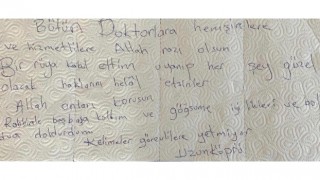 Bütün Doktorlara hemşirelere
ve hizmetlilere Allah razı olsun
Bir rüya kabul ettim uyanıp her şey güzel
olacak haklarını helâl etsinler
Allah onları korusun
başbaşa kaldım ve göğsümü iyilikleri ve
dua doldurdum
Kelimeler görevlilere yetmiyor
Uzunköprü